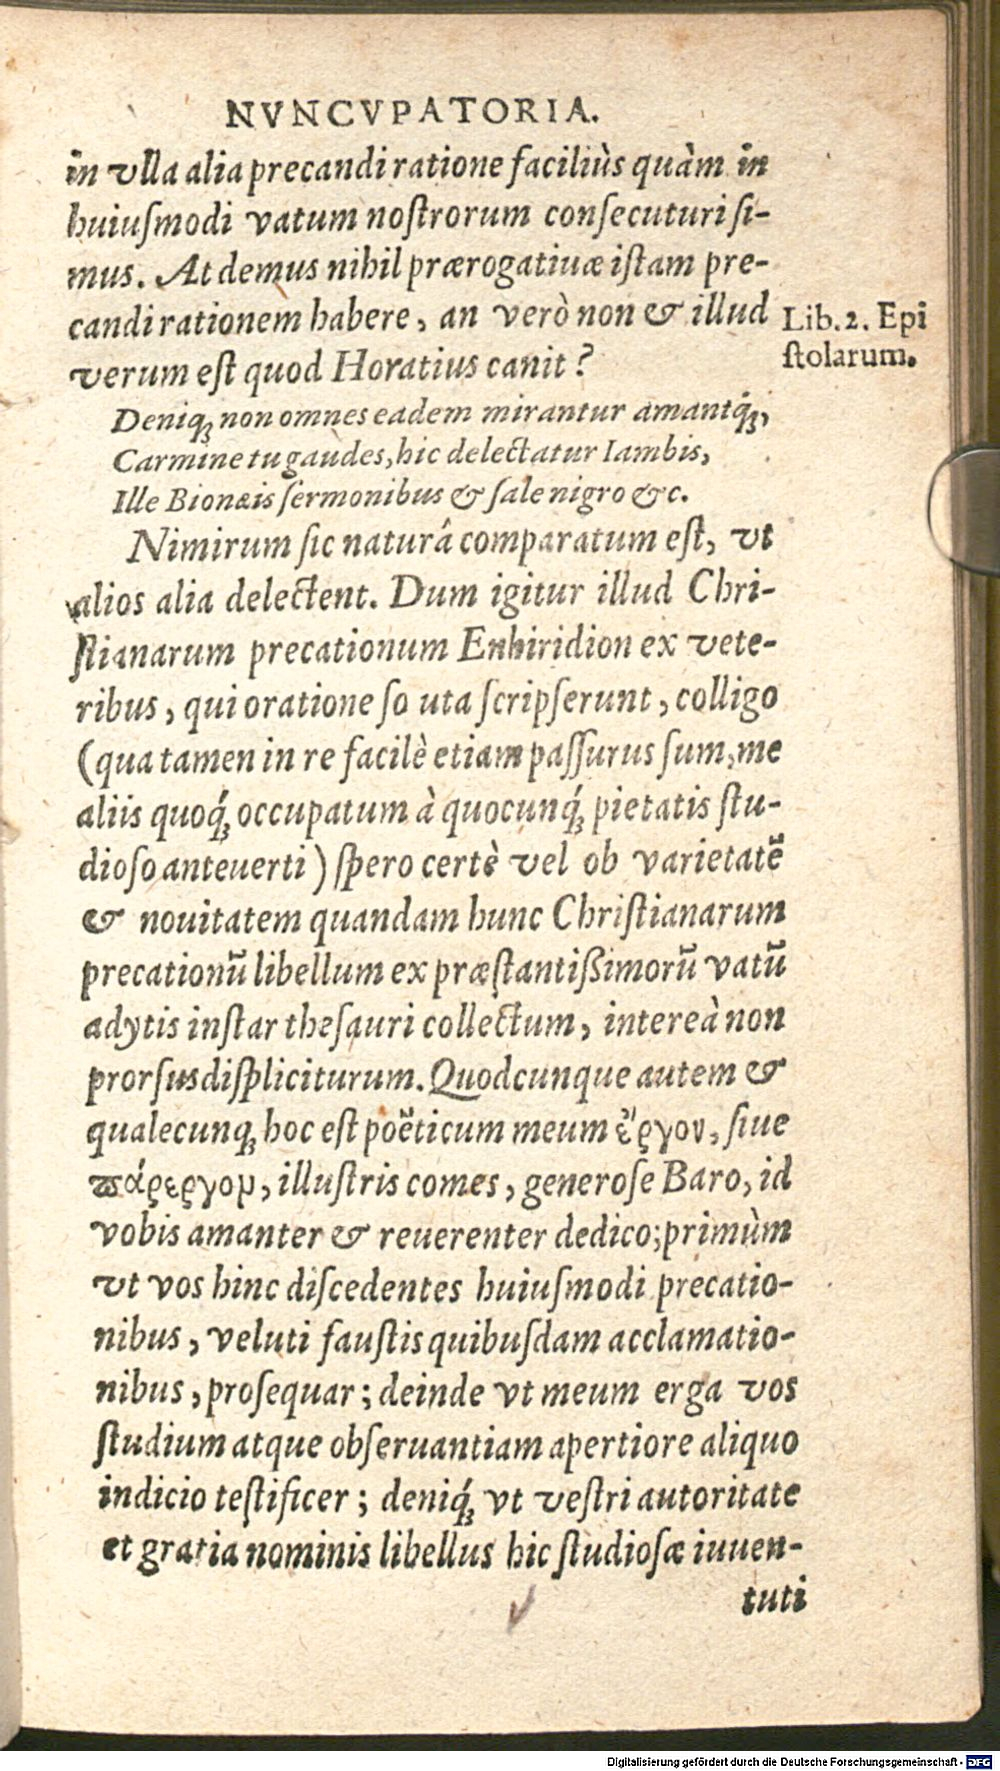 NVNCVPATORIA.
in vlla alia precandi ratione faciliùs quàm in
huiuſmodi vatum noſtrorum conſecuturi ſi-
mus. At demus nihil prærogatiuæ iſtam pre-
candi rationem habere, an verò non & illud
verum eſt quod Horatius canit?
Lib. 2. Epi
ſtolarum.
Deniqꝫ non omnes eadem mirantur amantq́ꝫ,
Carmine tu gaudes, hic delectatur Iambis,
Ille Bionæis ſermonibus & ſale nigro &c.
Nimirum ſic naturâ comparatum eſt, vt
alios alia delectent. Dum igitur illud Chri-
ſtianarum precationum Enhiridion ex vete-
ribus, qui oratione ſo uta ſcripſerunt, colligo
(qua tamen in re facilè etiam paſſurus ſum, me
aliis quoq́ꝫ occupatum à quocunq́ꝫ pietatis ſtu-
dioſo anteuerti) ſpero certè vel ob varietatē
& nouitatem quandam hunc Chriſtianarum
precationū libellum ex præſtantißimorū vatū
adytis inſtar theſauri collectum, intereà non
prorſus diſpliciturum. Quodcunque autem &
qualecunqꝫ hoc eſt poëticum meum ἔργον, ſiue
πάρεργον, illuſtris comes, generoſe Baro, id
vobis amanter & reuerenter dedico; primùm
vt vos hinc diſcedentes huiuſmodi precatio-
nibus, veluti fauſtis quibuſdam acclamatio-
nibus, proſequar; deinde vt meum erga vos
ſtudium atque obſeruantiam apertiore aliquo
indicio teſtificer; deniq́ꝫ vt veſtri autoritate
et gratia nominis libellus hic ſtudioſæ iuuen-
tuti
Digitalisierung gefördert durch die Deutsche Forschungsgemeinschaft - DFG